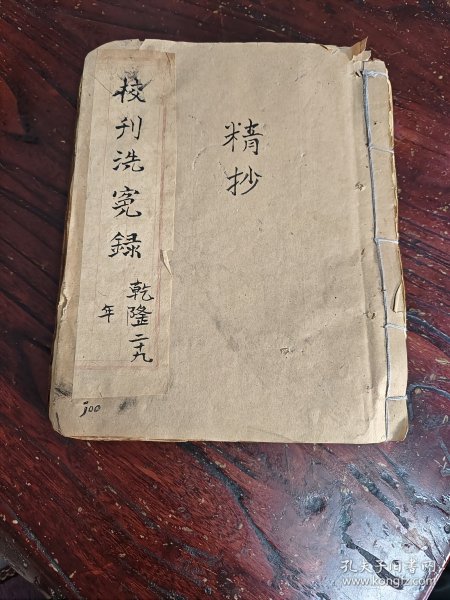 精抄
校刊洗冤録
乾隆二十九
年
100
孔夫子旧书网
www.kongfz.com